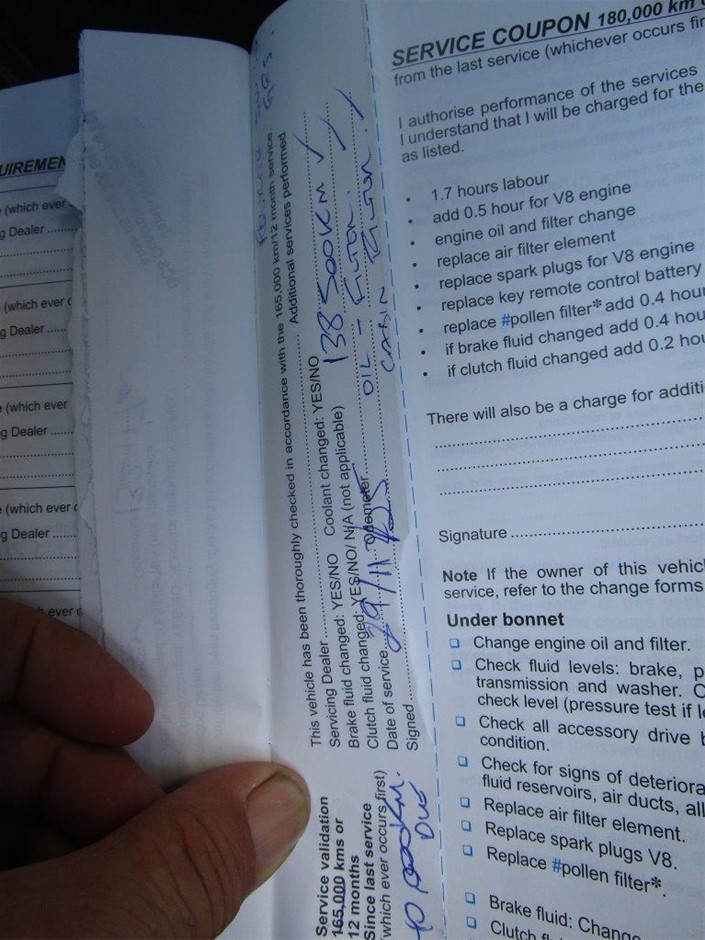 UIREMEN
(which ever
g Dealer
(which ever
g Dealer
(which ever
g Dealer
(which ever
g Dealer
ever
This vehicle has been thoroughly checked in accordance with the 165,000 km/12 month service.
Servicing Dealer Additional services performed
Brake fluid changed: YES/NO Coolant changed: YES/NO 138 500KM
Clutch fluid changed: YES/NO/ N/A (not applicable) OIL - FILTOR.
Date of service Odometer CABIN FILTOR
Signed
Service validation
165,000 kms or
12 months
Since last service
(which ever occurs first)
DUE
SERVICE COUPON 180,000 km
from the last service (whichever occurs fir
I authorise performance of the services
I understand that I will be charged for the
as listed.
• 1.7 hours labour
• add 0.5 hour for V8 engine
• engine oil and filter change
• replace air filter element
• replace spark plugs for V8 engine
• replace key remote control battery
• replace #pollen filter* add 0.4 hour
• if brake fluid changed add 0.4 hou
• if clutch fluid changed add 0.2 hou
There will also be a charge for additi
Signature
Note If the owner of this vehicl
service, refer to the change forms
Under bonnet
❑ Change engine oil and filter.
❑ Check fluid levels: brake, p
transmission and washer. C
check level (pressure test if le
❑ Check all accessory drive b
condition.
❑ Check for signs of deteriora
fluid reservoirs, air ducts, all
❑ Replace air filter element.
❑ Replace spark plugs V8.
❑ Replace #pollen filter*.
❑ Brake fluid: Change
❑ Clutch fl